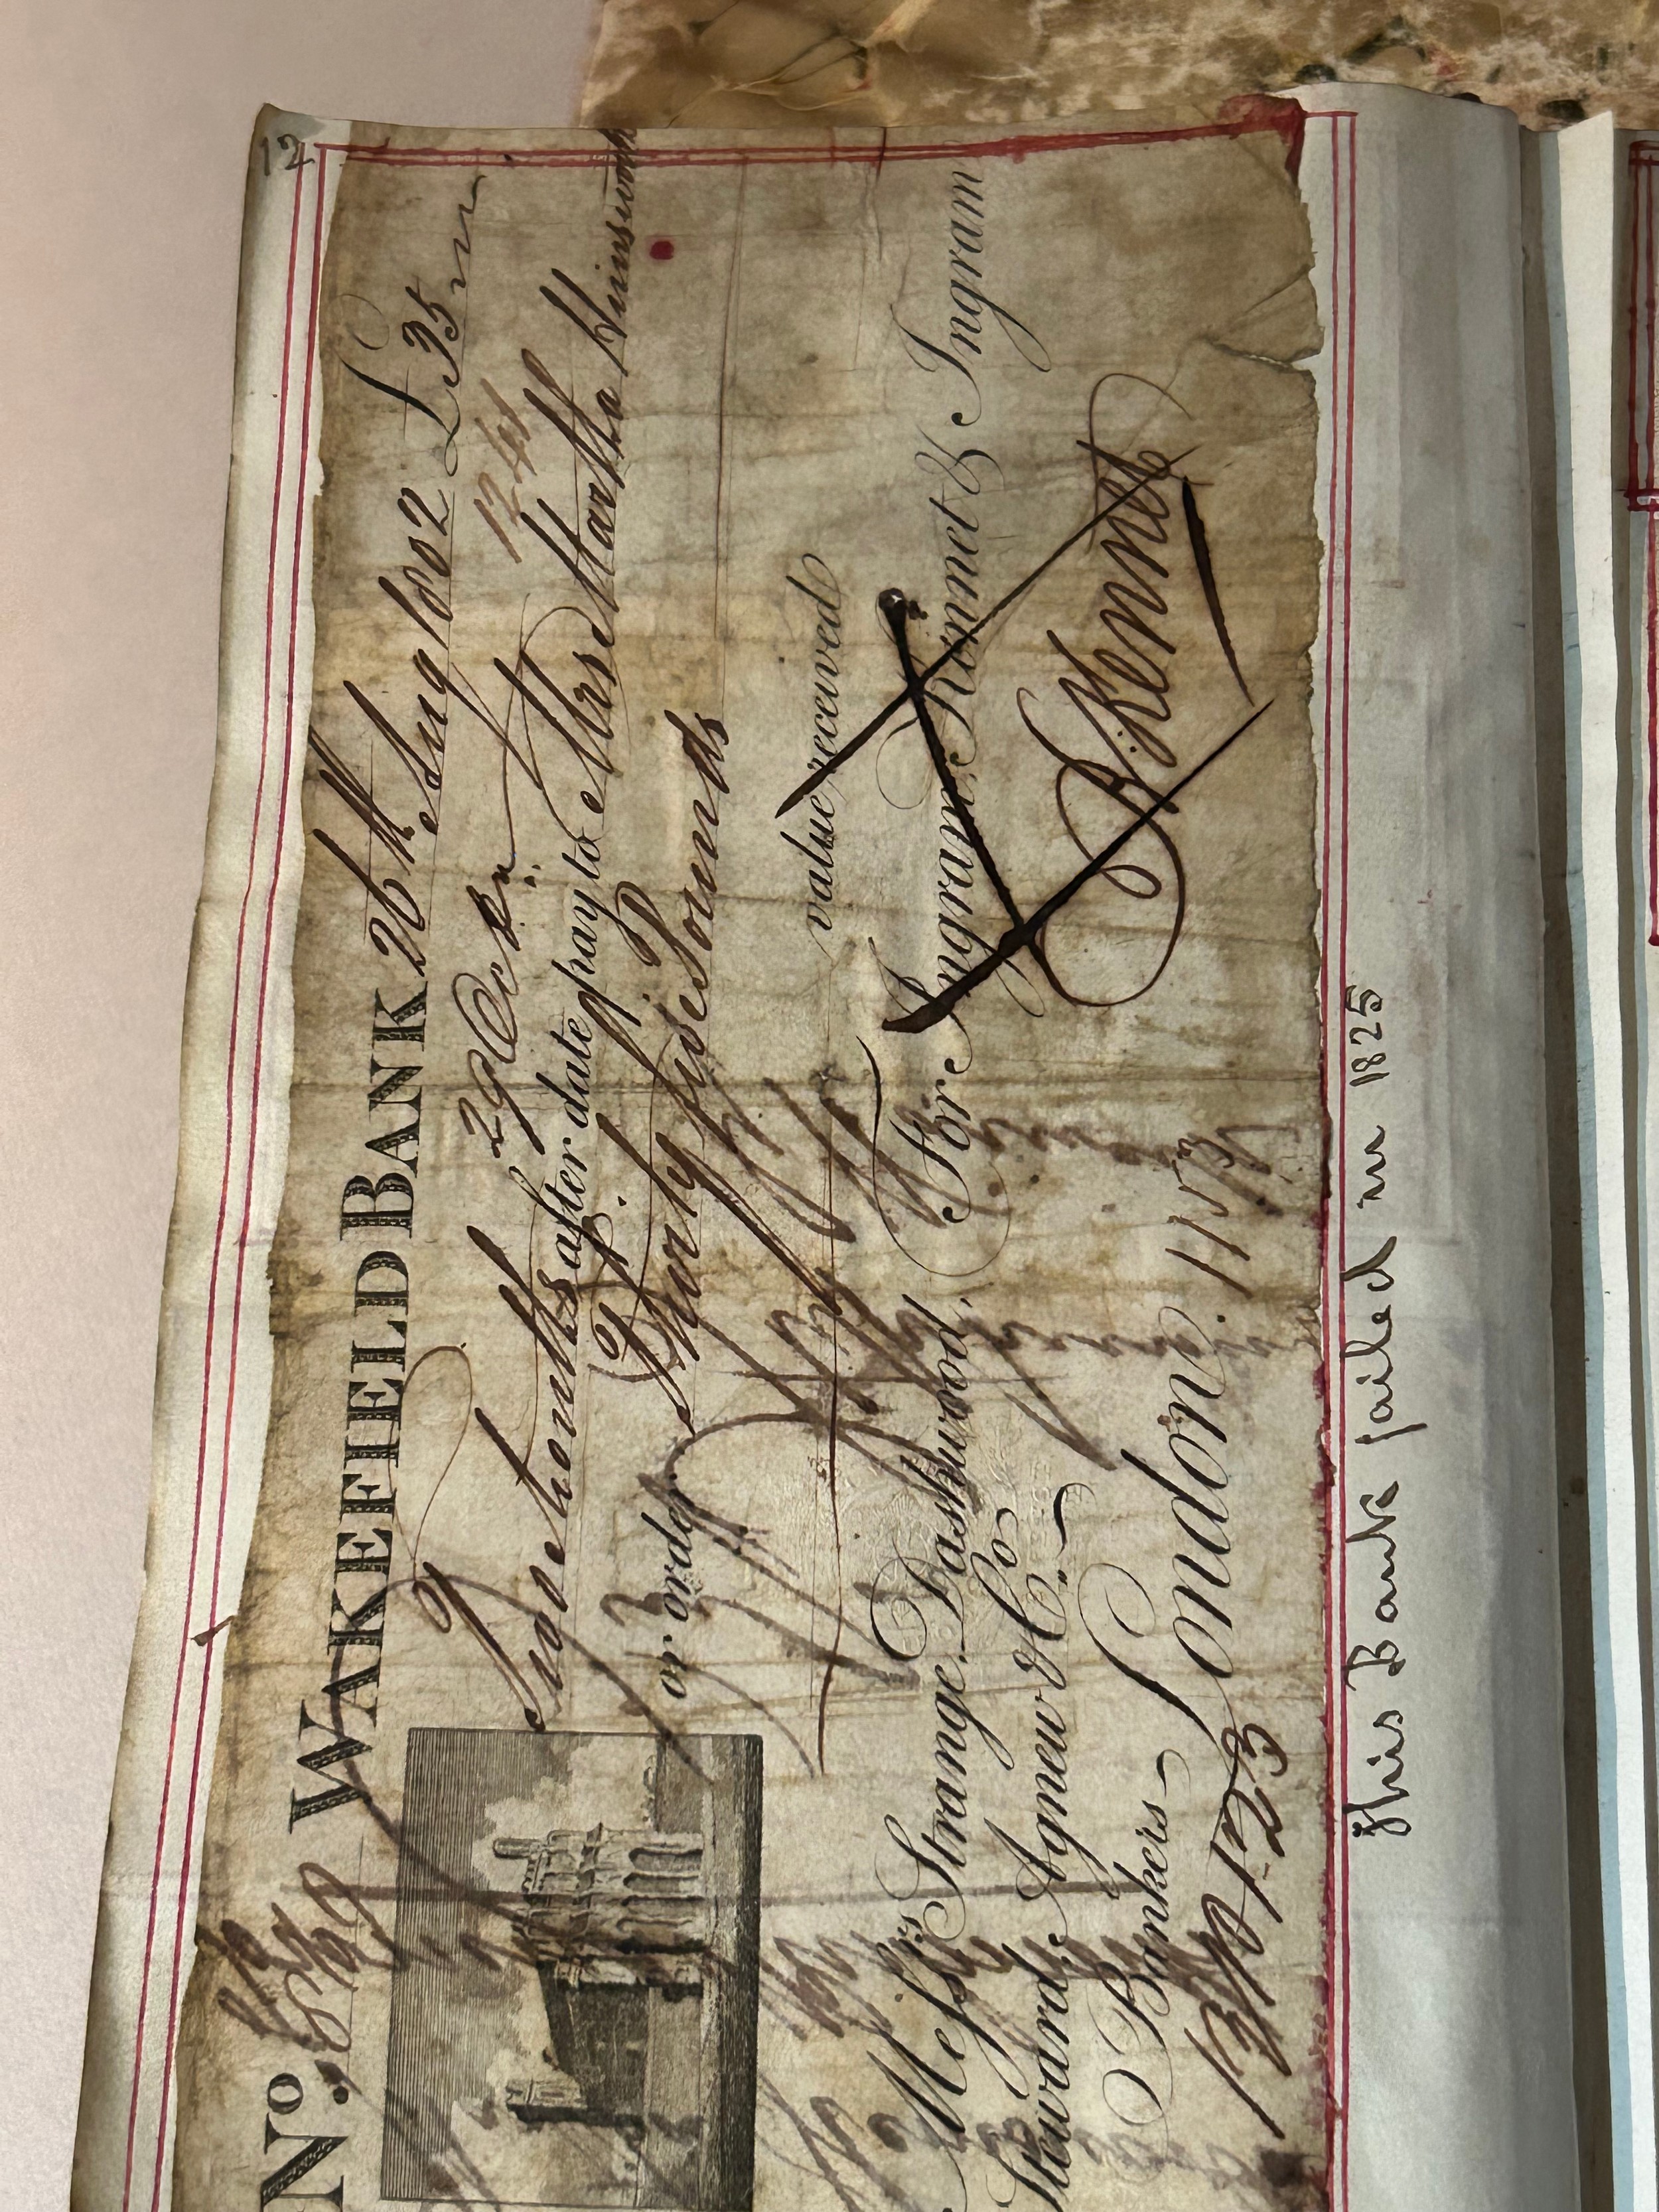 12
No. 869 WAKEFIELD BANK 26th Aug 1802 £35
29 Octr
Two Months after date pay to Mrs Martha Hinsworth
or order Thirty five Pounds
value received
Messrs Strange, Dashwood, For Ingram, Kennet & Ingram
Steward, Agnew & Co
Bankers London
B. Kennet
123
This Bank failed in 1825